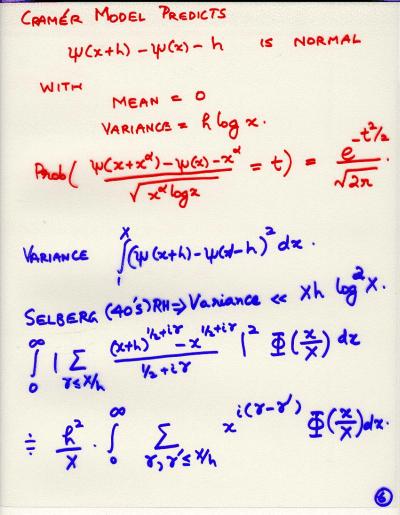 CRAMÉR MODEL PREDICTS
ψ(x+h) − ψ(x) − h IS NORMAL
WITH
MEAN = 0
VARIANCE = h log x.
Prob( (ψ(x+x^α) − ψ(x) − x^α) / √(x^α log x) = t ) = e^(−t²/2) / √(2π) .
VARIANCE ∫_1^X (ψ(x+h) − ψ(x) − h)² dx .
SELBERG (40's) RH ⇒ Variance << Xh log² X.
∫_0^∞ | Σ_(γ≤X/h) ((x+h)^(1/2+iγ) − x^(1/2+iγ)) / (1/2+iγ) |² Φ(x/X) dx
≑ h²/X . ∫_0^∞ Σ_(γ,γ'≤X/h) x^(i(γ−γ')) Φ(x/X) dx.
6